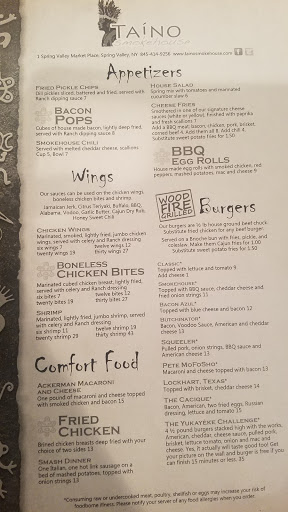 TAÍNO
SMOKEHOUSE
1 Spring Valley Market Place, Spring Valley, NY 845-414-9256 www.tainosmokehouse.com
Appetizers
FRIED PICKLE CHIPS
Dill pickles sliced, battered and fried, served with
Ranch dipping sauce 7
BACON
POPS
Cubes of house made bacon, lightly deep fried,
served with Ranch dipping sauce 8
SMOKEHOUSE CHILI
Served with melted cheddar cheese, scallions
Cup 5, Bowl 7
HOUSE SALAD
Spring mix with tomatoes and marinated
cucumber slaw 6
CHEESE FRIES
Smothered in one of our signature cheese
sauces (white or yellow), finished with paprika
and fresh scallions 7
Add a BBQ meat: bacon, chicken, pork, brisket,
corned beef 4. Add them all 8. Add chili 4.
Substitute sweet potato fries for 1.50
BBQ
EGG ROLLS
House made egg rolls with smoked chicken, red
peppers, mashed potatoes, mac and cheese 9
Wings
Our sauces can be used on the chicken wings,
boneless chicken bites and shrimp
Jamaican Jerk, Citrus Teriyaki, Buffalo, BBQ,
Alabama, Voodoo, Garlic Butter, Cajun Dry Rub,
Honey Sweet Chili
CHICKEN WINGS
Marinated, smoked, lightly fried, jumbo chicken
wings, served with celery and Ranch dressing
six wings 7 twelve wings 13
twenty wings 19 thirty wings 27
BONELESS
CHICKEN BITES
Marinated cubed chicken breast, lightly fried,
served with celery and Ranch dressing
six bites 7 twelve bites 12
twenty bites 19 thirty bites 27
SHRIMP
Marinated, lightly fried, jumbo shrimp, served
with celery and Ranch dressing
six shrimp 11 twelve shrimp 19
twenty shrimp 29 thirty shrimp 43
WOOD
FIRE
GRILLED
Burgers
Our burgers are ½ lb house ground beef chuck.
Substitute fried chicken for any beef burger.
Served on a Brioche bun with fries, pickle, and
coleslaw. Make them Cajun fries for 1.00
Substitute sweet potato fries for 1.50
CLASSIC*
Topped with lettuce and tomato 9
Add cheese 1
SMOKEHOUSE*
Topped with BBQ sauce, cheddar cheese and
fried onion strings 11
BACON AZUL*
Topped with blue cheese and bacon 12
BUTCHINATOR*
Bacon, Voodoo Sauce, and American cheese
13
SQUEELER*
Pulled pork, onion strings, BBQ sauce and
American cheese 13
PETE MOFOSHO*
Macaroni and cheese topped with bacon 13
LOCKHART, TEXAS*
Topped with brisket, cheddar cheese 14
THE CACIQUE*
Bacon, American, two fried eggs, Russian
dressing, lettuce and tomato 15
THE YUKAYEKE CHALLENGE*
4 ½ pound burgers stacked high with the works,
American, cheddar, cheese sauce, pulled pork,
brisket, lettuce tomato, onion and mac and
cheese. Yes, it actually will taste good too! Get
your picture on the wall and burger is free if you
can finish 15 minutes or less. 35
Comfort Food
ACKERMAN MACARONI
AND CHEESE
One pound of macaroni and cheese topped
with smoked chicken and bacon 15
FRIED
CHICKEN
Brined chicken breasts deep fried with your
choice of two sides 13
SMASH DINNER
One Italian, one hot link sausage on a
bed of mashed potatoes, topped with
onion strings 13
*Consuming raw or undercooked meat, poultry, shellfish or eggs may increase your risk of
foodborne illness. Please notify your server of any food allergies when you order.